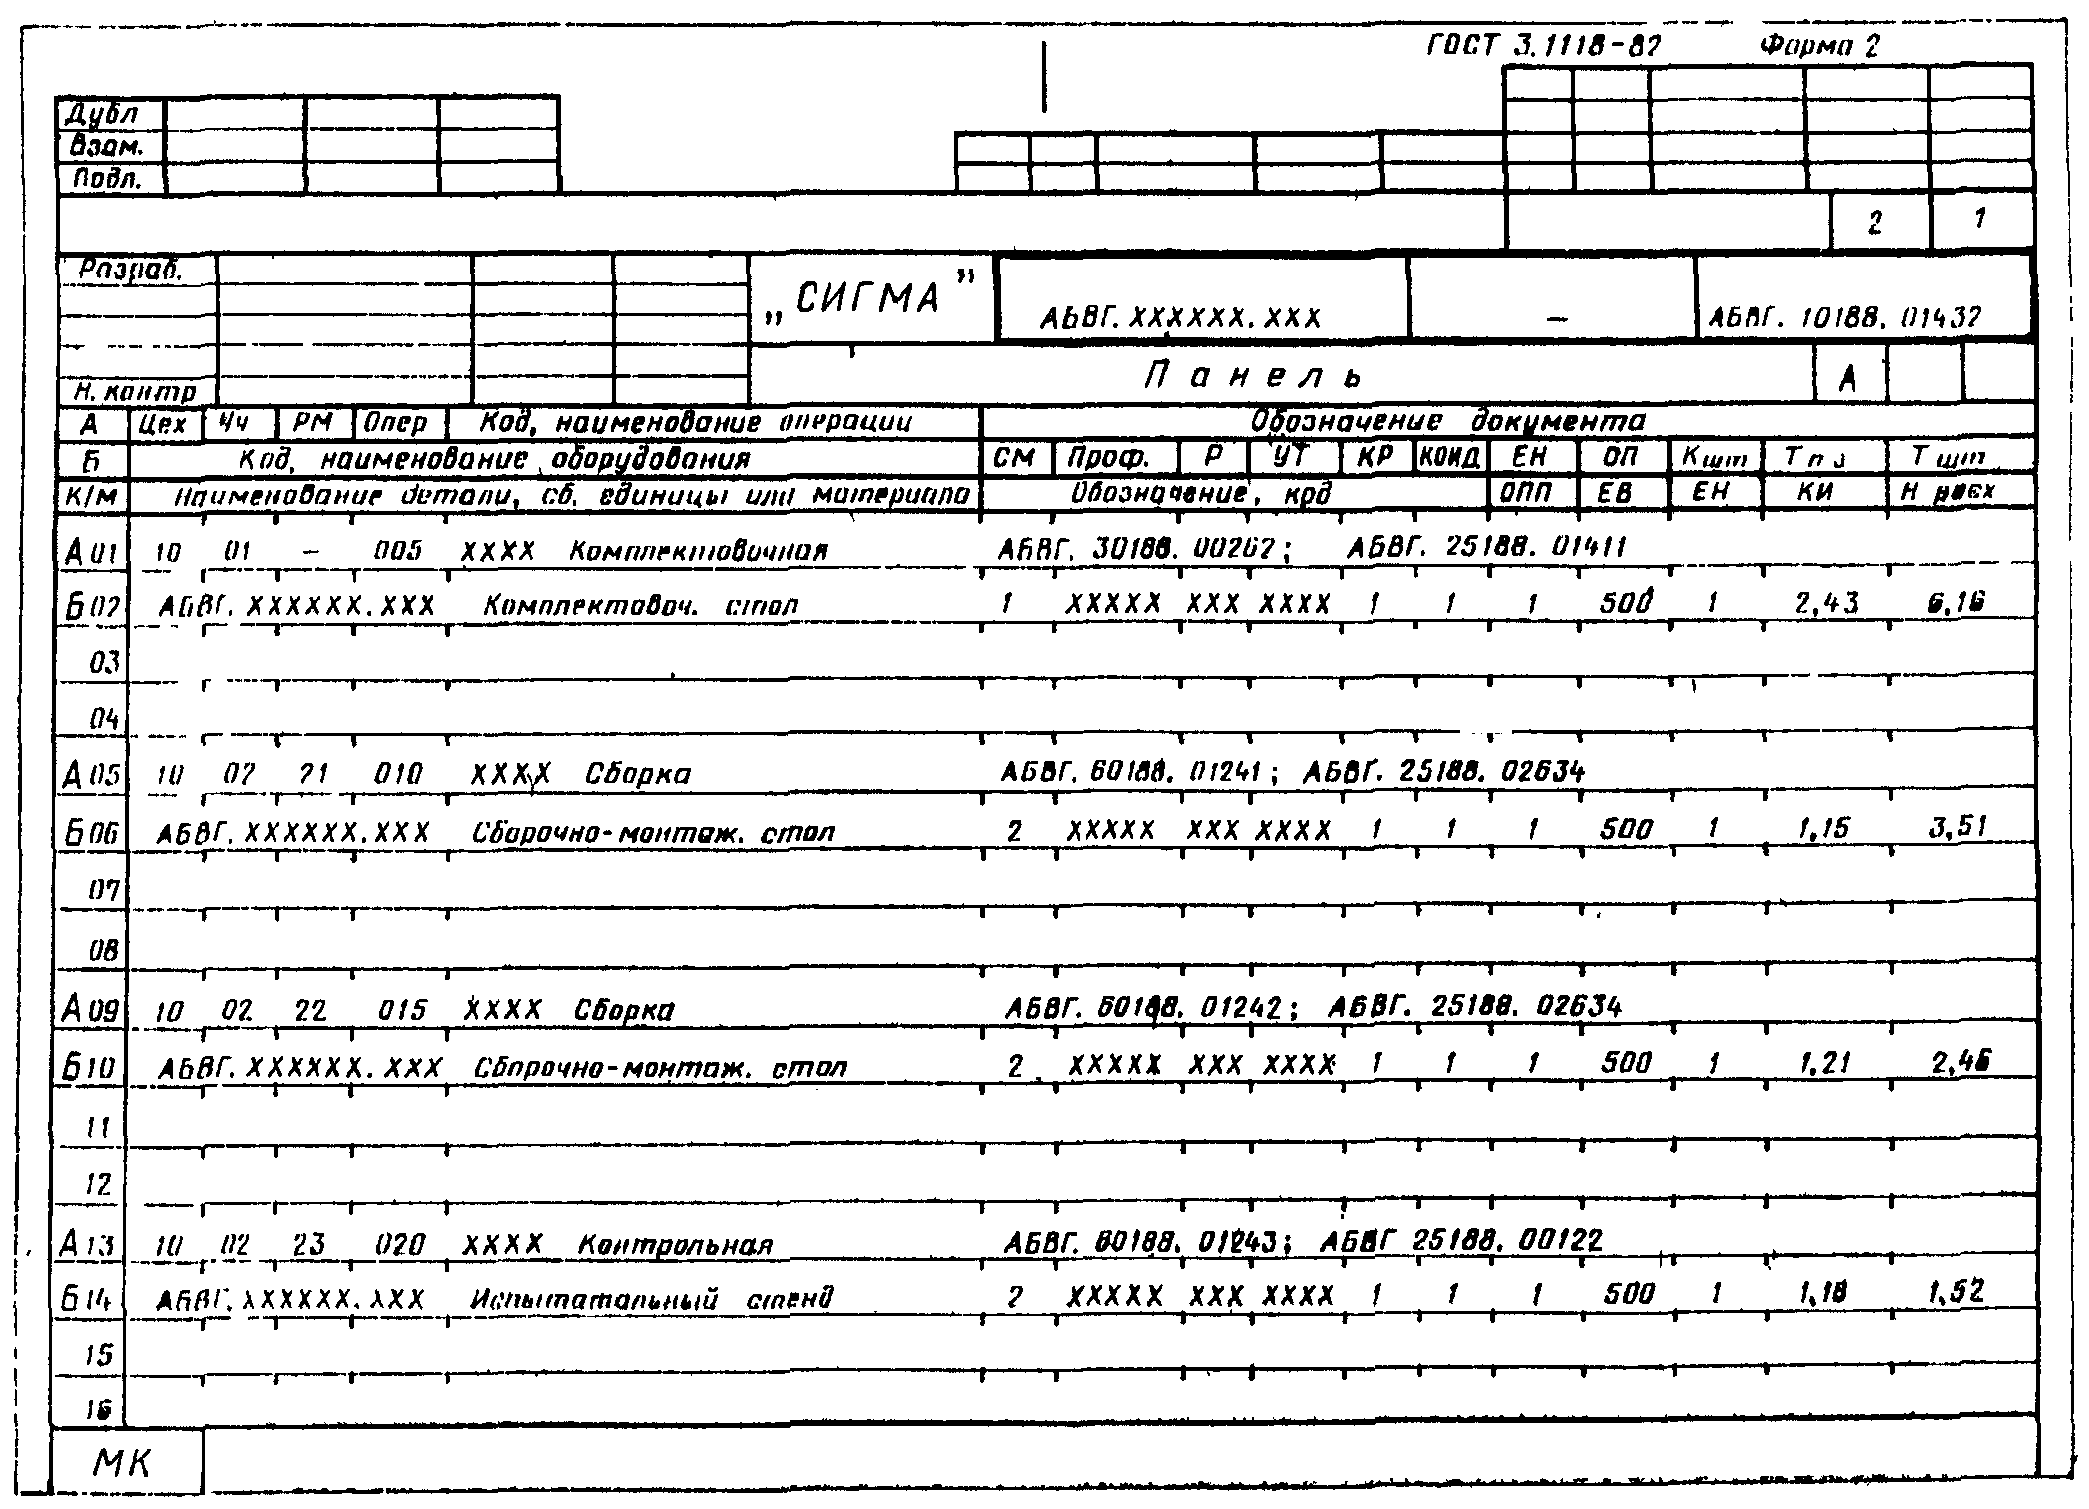 ГОСТ 3.1118-82 Форма 2
Дубл
Взам.
Подл.
2 1
Разраб.
„СИГМА”
АБВГ.ХХХХХХ.ХХХ — АБВГ. 10188. 01432
Панель А
Н. контр
А Цех Уч РМ Опер Код, наименование операции Обозначение документа
Б Код, наименование оборудования СМ Проф. Р УТ КР КОИД ЕН ОП Кшт Тпз Тшт
К/М Наименование детали, сб. единицы или материала Обозначение, код ОПП ЕВ ЕН КИ Н расх
А01 10 01 – 005 ХХХХ Комплектовочная АБВГ. 30188. 00262; АБВГ. 25188. 01411
Б02 АБВГ.ХХХХХХ.ХХХ Комплектовоч. стол 1 ХХХХХ ХХХ ХХХХ 1 1 1 500 1 2,43 6,16
03
04
А05 10 02 21 010 ХХХХ Сборка АБВГ. 60188. 01241; АБВГ. 25188. 02634
Б06 АБВГ.ХХХХХХ.ХХХ Сборочно-монтаж. стол 2 ХХХХХ ХХХ ХХХХ 1 1 1 500 1 1,15 3,51
07
08
А09 10 02 22 015 ХХХХ Сборка АБВГ. 60188. 01242; АБВГ. 25188. 02634
Б10 АБВГ.ХХХХХХ.ХХХ Сборочно-монтаж. стол 2 ХХХХХ ХХХ ХХХХ 1 1 1 500 1 1,21 2,46
11
12
А13 10 02 23 020 ХХХХ Контрольная АБВГ. 60188. 01243; АБВГ 25188. 00122
Б14 АБВГ.ХХХХХХ.ХХХ Испытатальный стенд 2 ХХХХХ ХХХ ХХХХ 1 1 1 500 1 1,18 1,52
15
16
МК